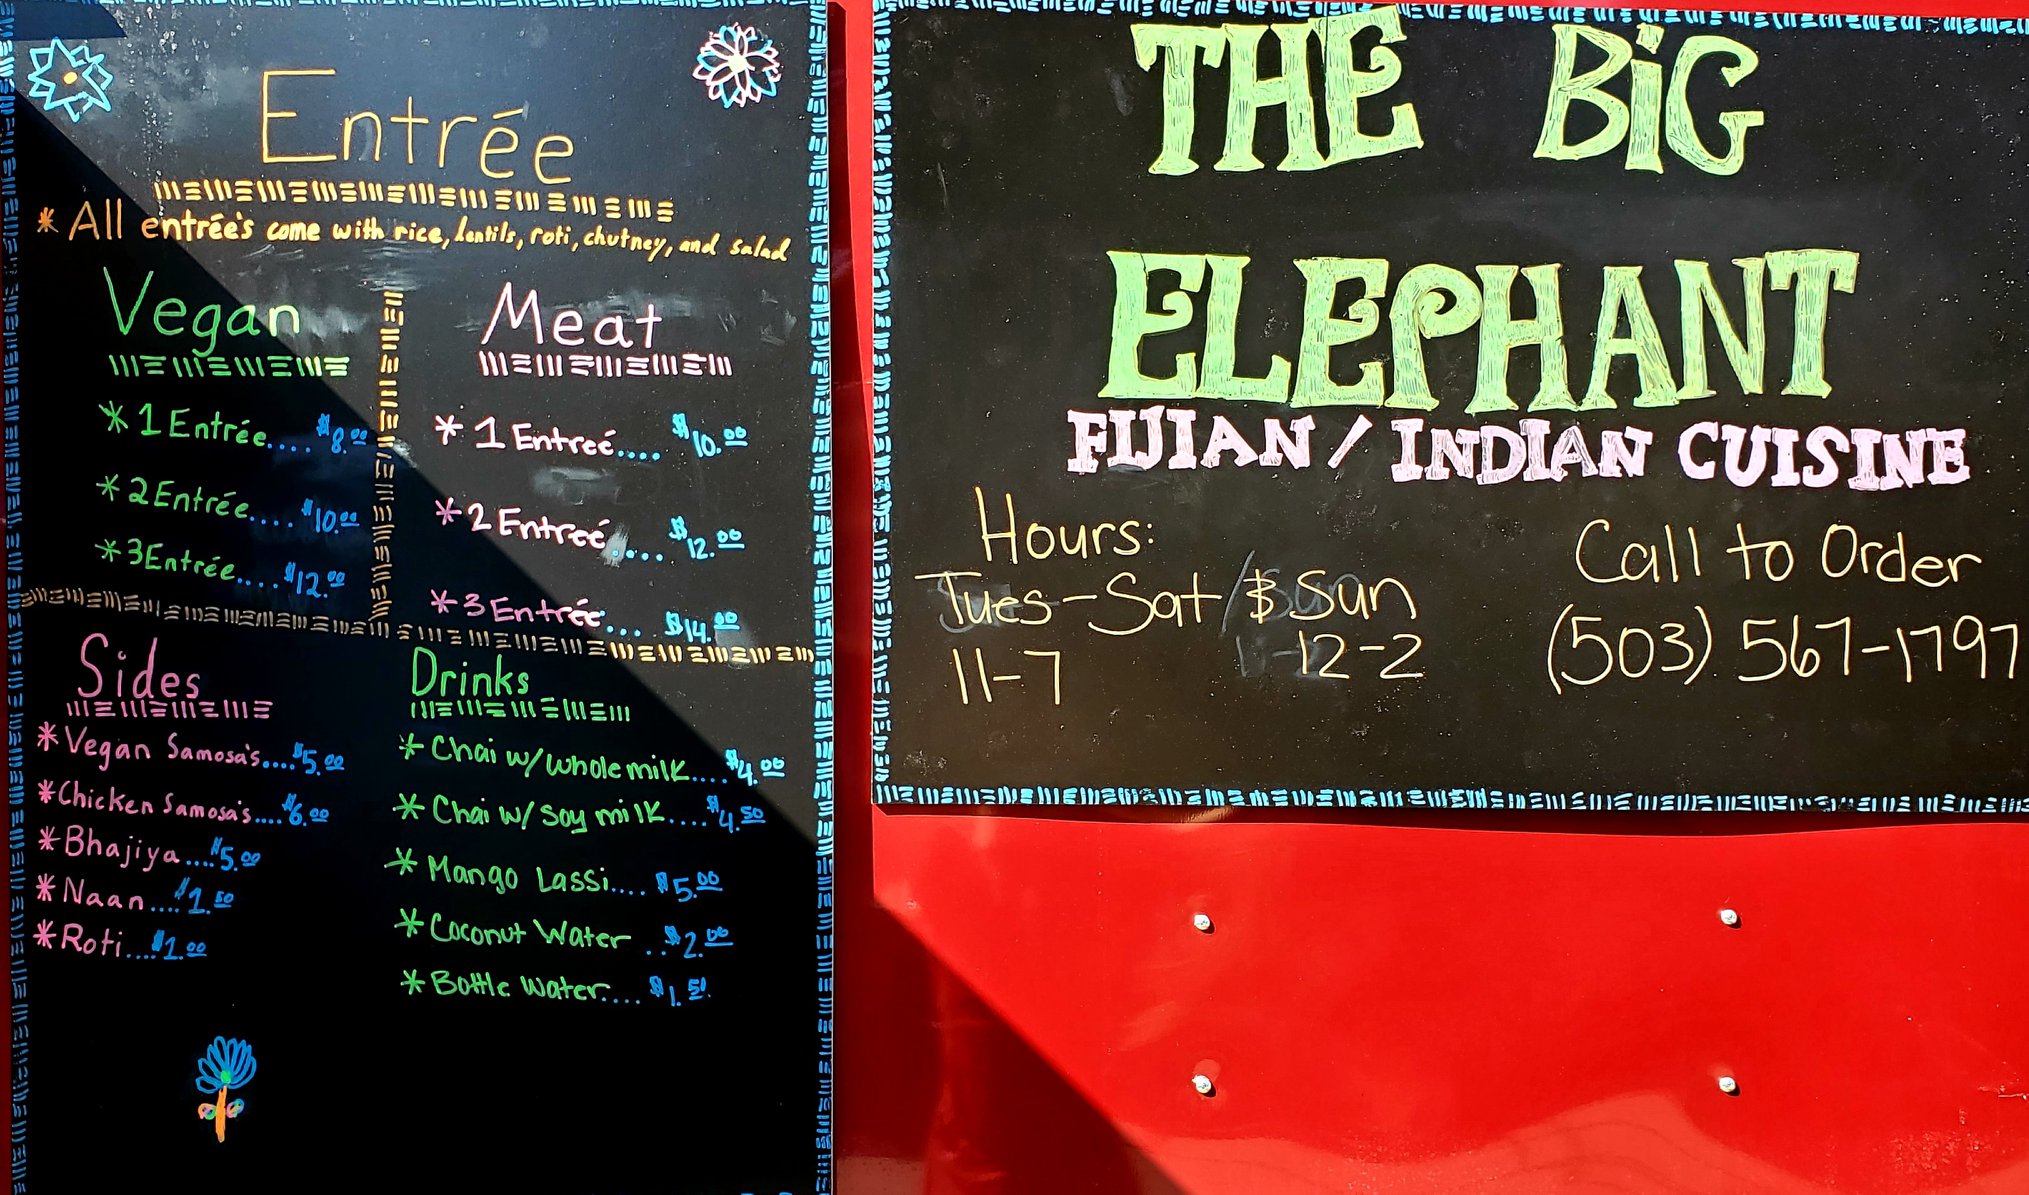 Entrée
* All entrée's come with rice, lentils, roti, chutney, and salad
Vegan
* 1 Entrée.... $8.00
* 2 Entrée.... $10.00
* 3 Entrée.... $12.00
Meat
* 1 Entreé.... $10.00
* 2 Entreé.... $12.00
* 3 Entrée... $14.00
Sides
* Vegan Samosa's.... $5.00
* Chicken Samosa's.... $6.00
* Bhajiya.... $5.00
* Naan.... $1.50
* Roti.... $1.00
Drinks
* Chai w/ whole milk.... $4.00
* Chai w/ soy milk.... $4.50
* Mango Lassi.... $5.00
* Coconut Water .. $2.00
* Bottle Water.... $1.50
THE BiG
ELEPHANT
FIJIAN / INDIAN CUISINE
Hours:
Tues-Sat / $ Sun
11-7 12-2
Call to Order
(503) 567-1797